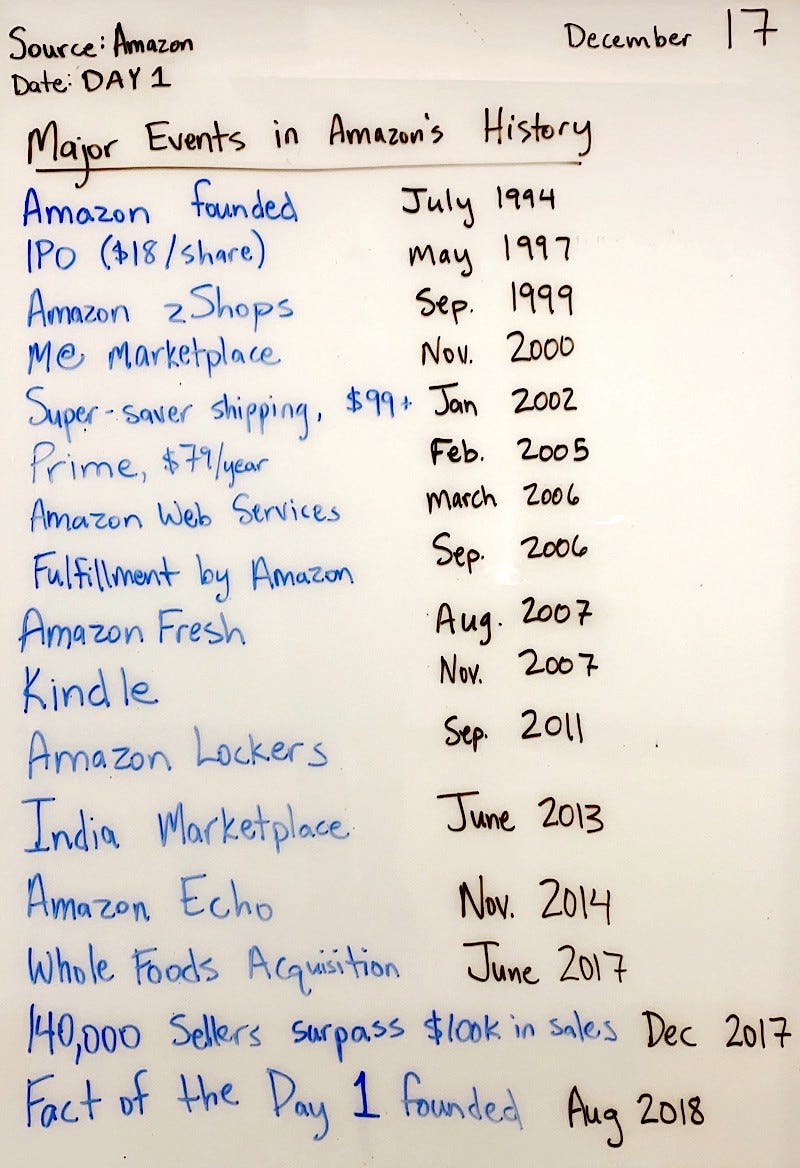 Source: Amazon December 17
Date: DAY 1
Major Events in Amazon's History
Amazon founded July 1994
IPO ($18/share) May 1997
Amazon zShops Sep. 1999
M@ Marketplace Nov. 2000
Super-saver shipping, $99+ Jan 2002
Prime, $79/year Feb. 2005
Amazon Web Services March 2006
Fulfillment by Amazon Sep. 2006
Amazon Fresh Aug. 2007
Kindle Nov. 2007
Amazon Lockers Sep. 2011
India Marketplace June 2013
Amazon Echo Nov. 2014
Whole Foods Acquisition June 2017
140,000 Sellers surpass $100k in sales Dec 2017
Fact of the Day 1 founded Aug 2018